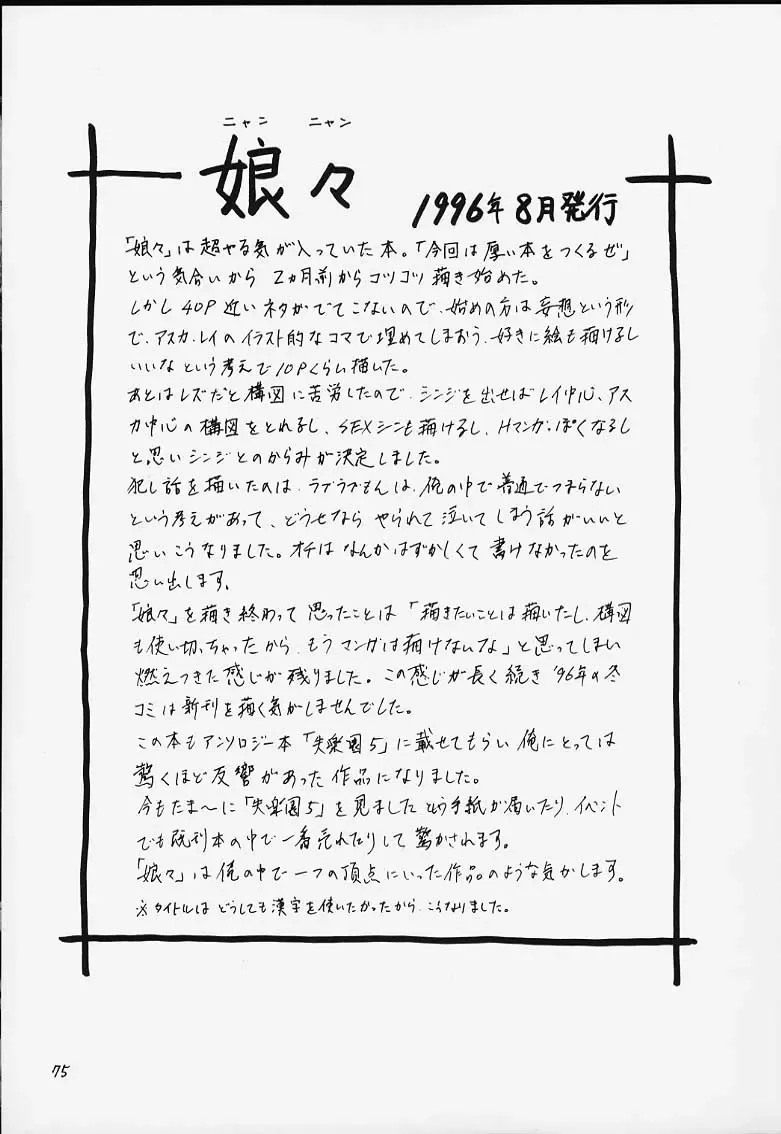 ニャン ニャン
娘々
1996年8月発行
「娘々」は超やる気が入っていた本。「今回は厚い本をつくるぜ」
という気合いから 2ヵ月前からコツコツ描き始めた。
しかし 40P 近いネタがでてこないので、始めの方は妄想という形
で、アスカ、レイのイラスト的なコマで埋めてしまおう、好きに絵も描けるし
いいな という考えで10Pくらい描いた。
あとはレズだと構図に苦労したので、シンジを出せばレイ中心、アス
カ中心の構図をとれるし、SEXシーンも描けるし、Hマンガっぽくなるし
と思いシンジとのからみが決定しました。
犯し話を描いたのは、ラブラブもんは、俺の中で普通でつまらない
という考えがあって、どうせなら やられて泣いてしまう話がいいと
思いこうなりました。オチはなんかはずかしくて 書けなかったのを
思い出します。
「娘々」を描き終わって 思ったことは「描きたいことは描いたし、構図
も使い切っちゃったから、もうマンガは描けないな」と思ってしまい
燃えつきた感じが残りました。この感じが長く続き '96年の冬
コミは新刊を描く気がしませんでした。
この本もアンソロジー本「失楽園5」に載せてもらい 俺にとっては
驚くほど反響があった作品になりました。
今もたま～に「失楽園5」を見ました という手紙が届いたり、イベント
でも既刊本の中で一番売れたりして 驚かされます。
「娘々」は俺の中で一つの頂点にいった作品のような気がします。
※タイトルは どうしても漢字を使いたかったから、こうなりました。
75